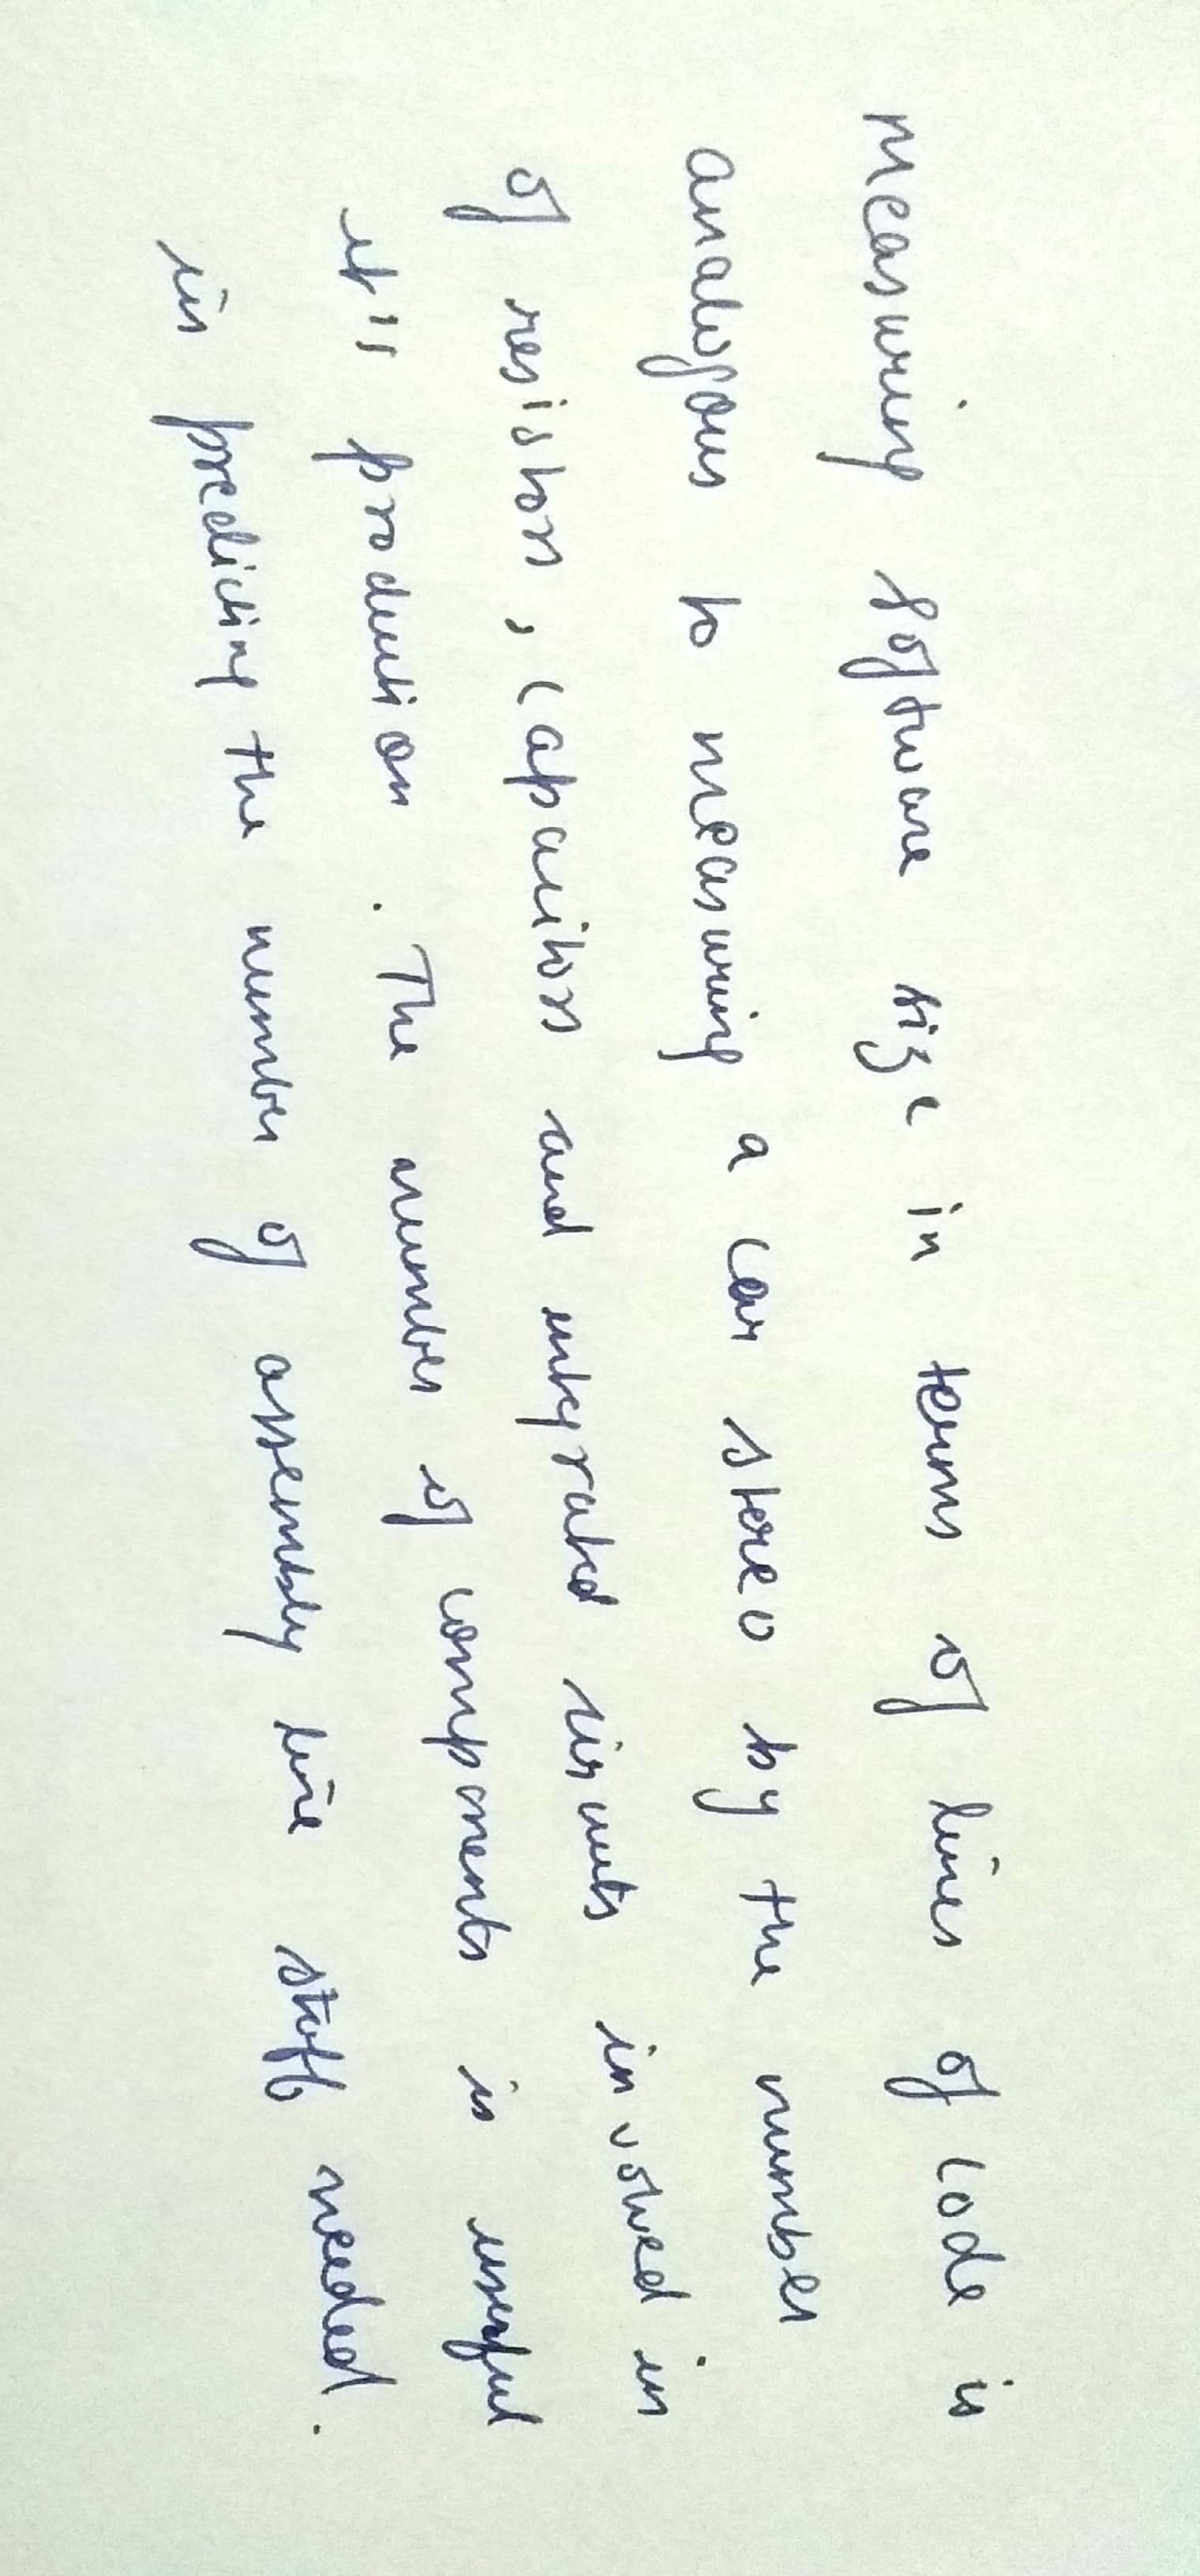 Measuring software size in terms of lines of code is
analogous to measuring a car stereo by the number
of resistors, capacitors and integrated circuits involved in
it's production. The number of components is useful
in predicting the number of assembly line staff needed.